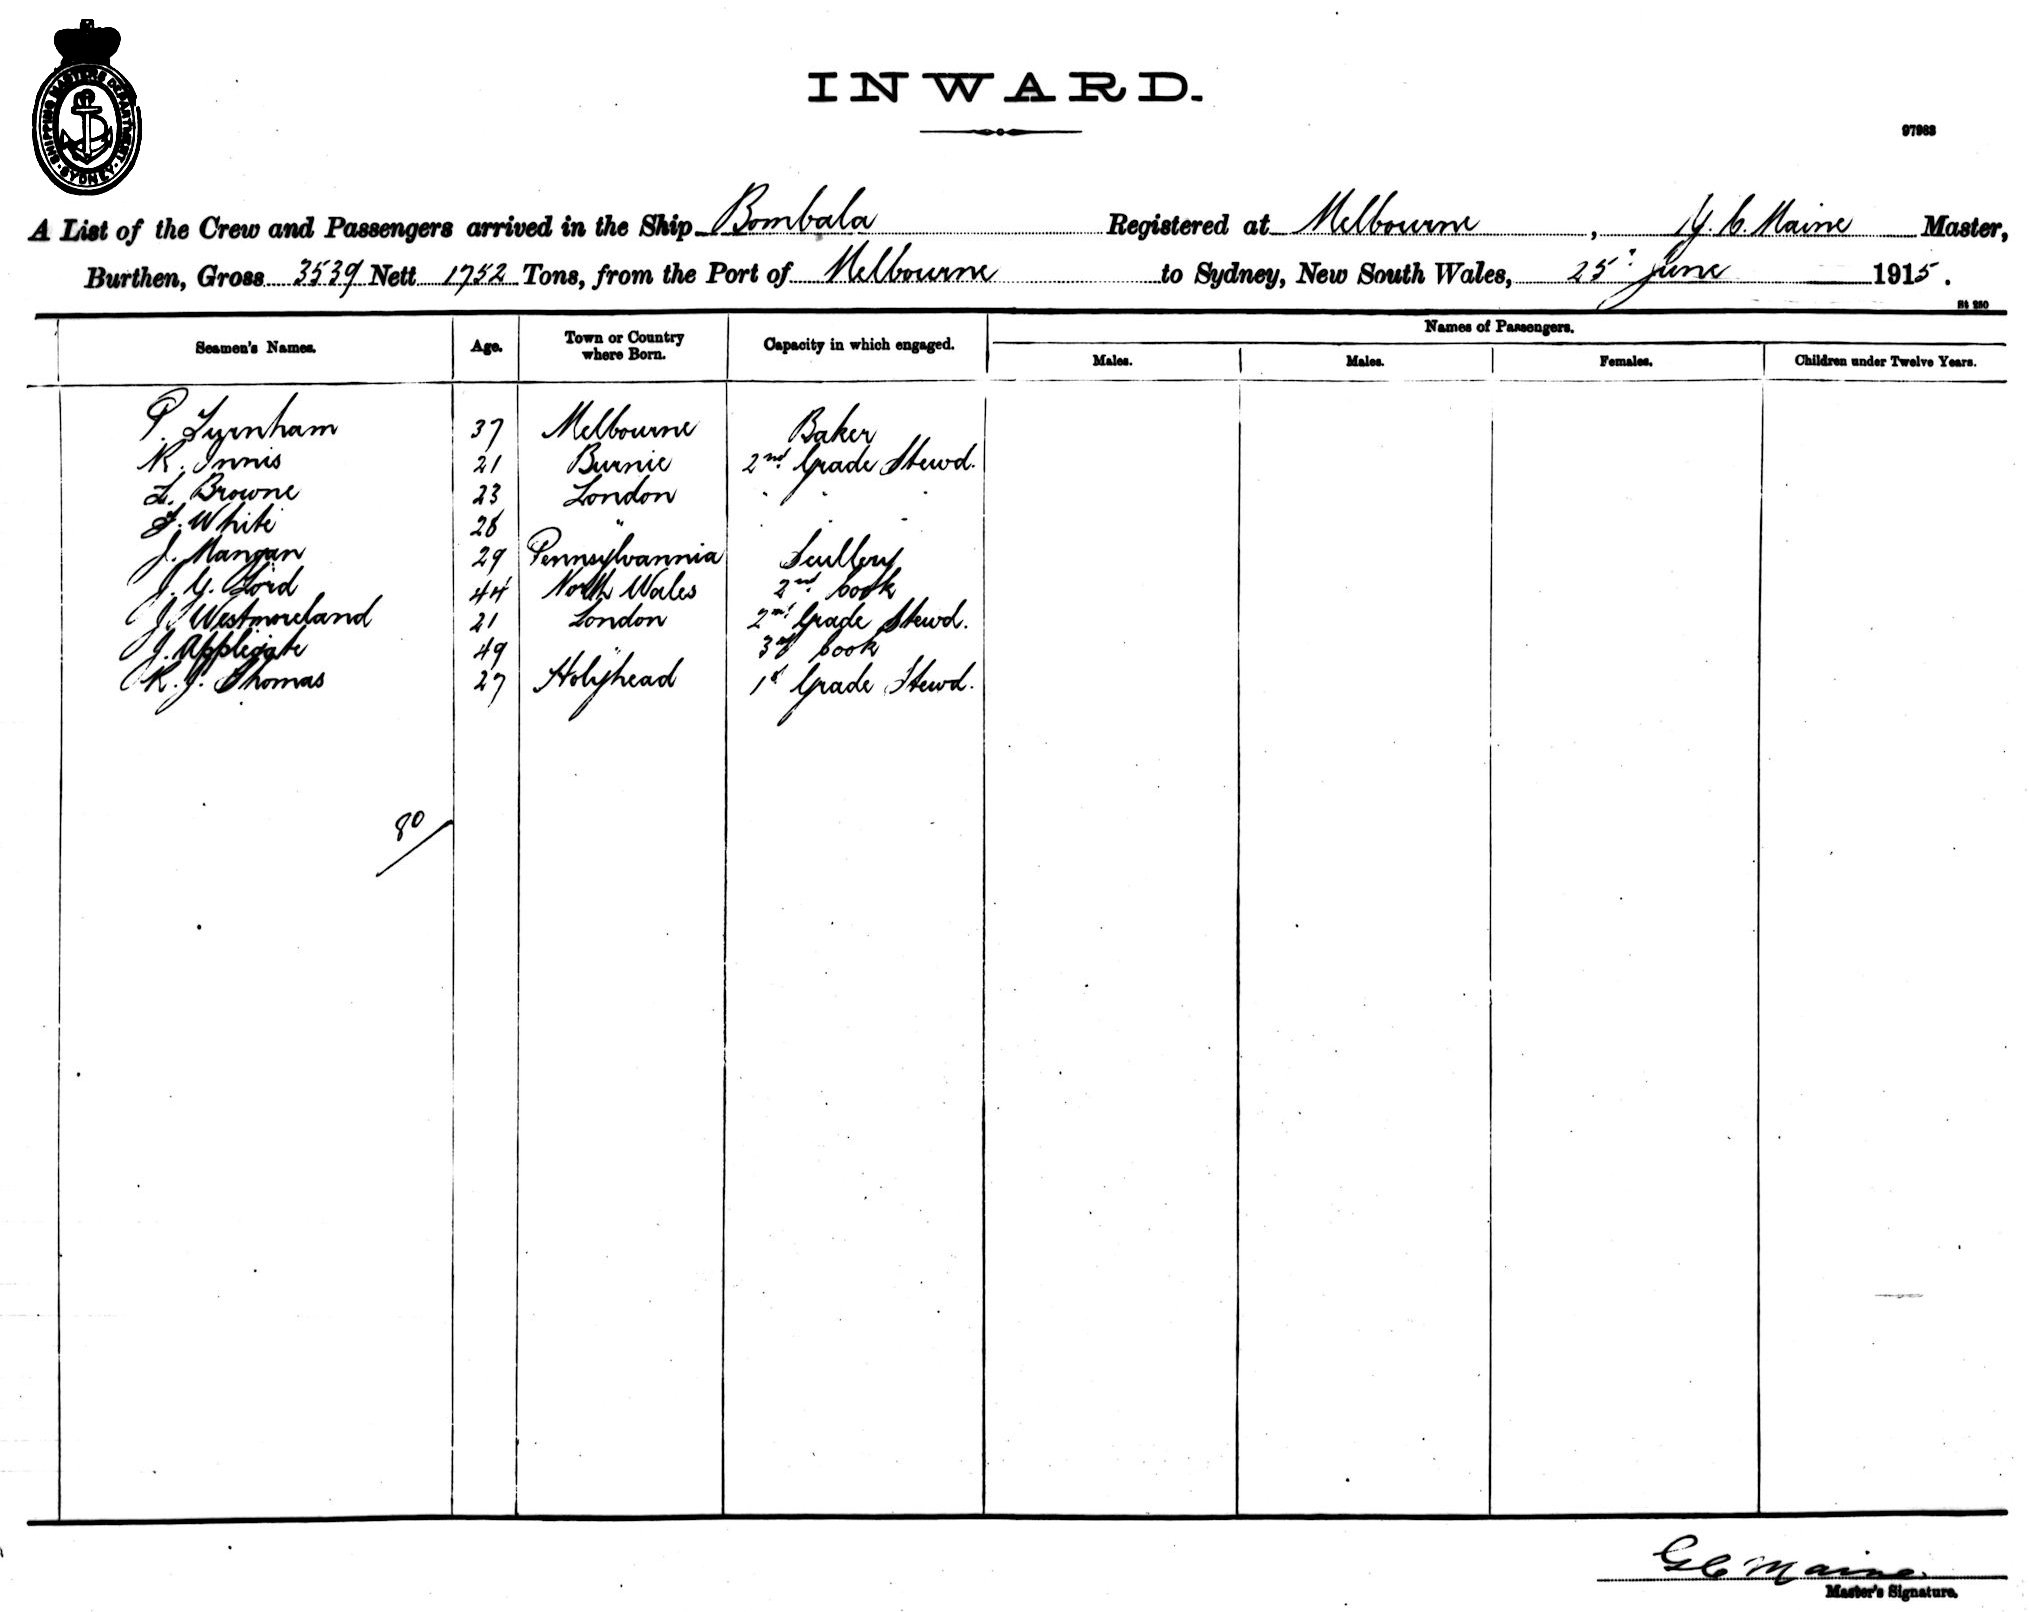 SHIPPING MASTERS DEPARTMENT · SYDNEY ·
INWARD.
97963
A List of the Crew and Passengers arrived in the Ship Bombala Registered at Melbourne, G. C. Maine Master,
Burthen, Gross 3539 Nett 1752 Tons, from the Port of Melbourne to Sydney, New South Wales, 25" June 1915.
Seamen's Names. Age. Town or Country where Born. Capacity in which engaged. Names of Passengers.
Males. Males. Females. Children under Twelve Years.
P. Turnham 37 Melbourne Baker
R. Innis 21 Burnie 2nd Grade Stewd.
L. Browne 23 London " " "
White 28 " " " "
J. Mangan 29 Pennsylvannia Scullery
J. G. Lord 44 North Wales 2nd Cook
J. Westmoreland 21 London 2nd Grade Stewd.
J. Applegate 49 " 3rd Cook
R. J. Thomas 27 Holyhead 1st Grade Stewd.
80/
G C Maine
Master's Signature.